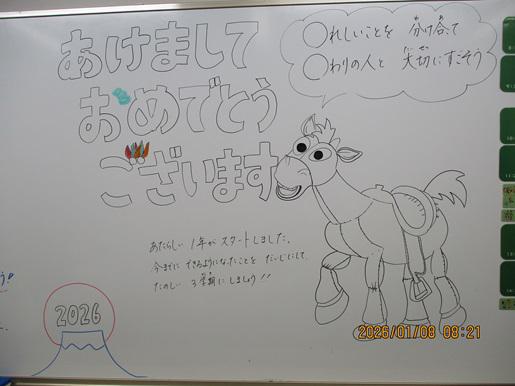 あけまして
おめでとう
ございます
〇れしいことを 分け合って
〇わりの人と 大切にすごそう
あたらしい 1年が スタートしました。
今までに できるようになったことを だいじにして、
たのしい 3学期にしましょう!!
2026
2026/01/08 08:21